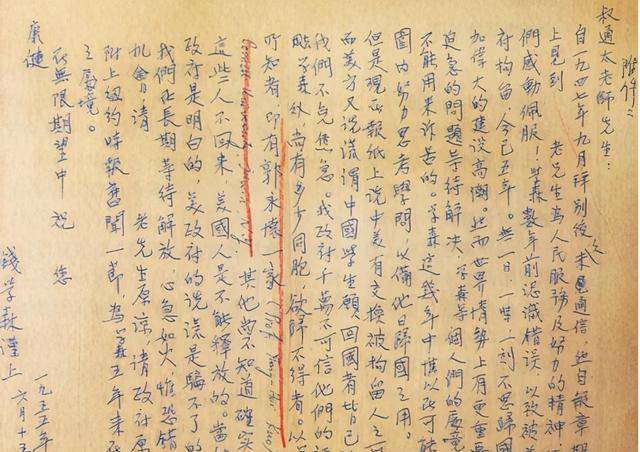 附件二
叔通太老師先生：
自一九四七年九月拜別後，未通信，然自報章期
上見到　老先生為人民服務及努力的精神，
們感動佩服！學森數年前認識錯誤，以致被美
府拘留，今已五年。無一日、一時、一刻不思歸國
加偉大的建設高潮，然而世界情勢上有更重要
迫急的問題等待解決，學森等個人們的處境
不能用來訴苦的。學森這幾年中惟以在可能
圍內努力思考學問，以備他日歸國之用。
但是現在報紙上說中美有交換被拘留人之可
而美方又說謊謂中國學生願回國者皆已
我們不免焦急。我政府千萬不可信他們的
學森外，尚有多少同胞，欲歸不得者。以
所知者，即有郭永懷一家 (Prof. Yung-huai Kuo,
Cornell University, 其他尚不知道確實
這些人不回來，美國人是不能釋放的。當
政府是明白的，美政府的說謊是騙不了的
我們在長期等待解放，心急如火，惟恐錯
機會，請　老先生原諒，請政府原
附上紐約時報舊聞一節，為學森五年來在
之處境。
在無限期望中　祝　您
康健
錢學森謹上
一九五五年
六月十五